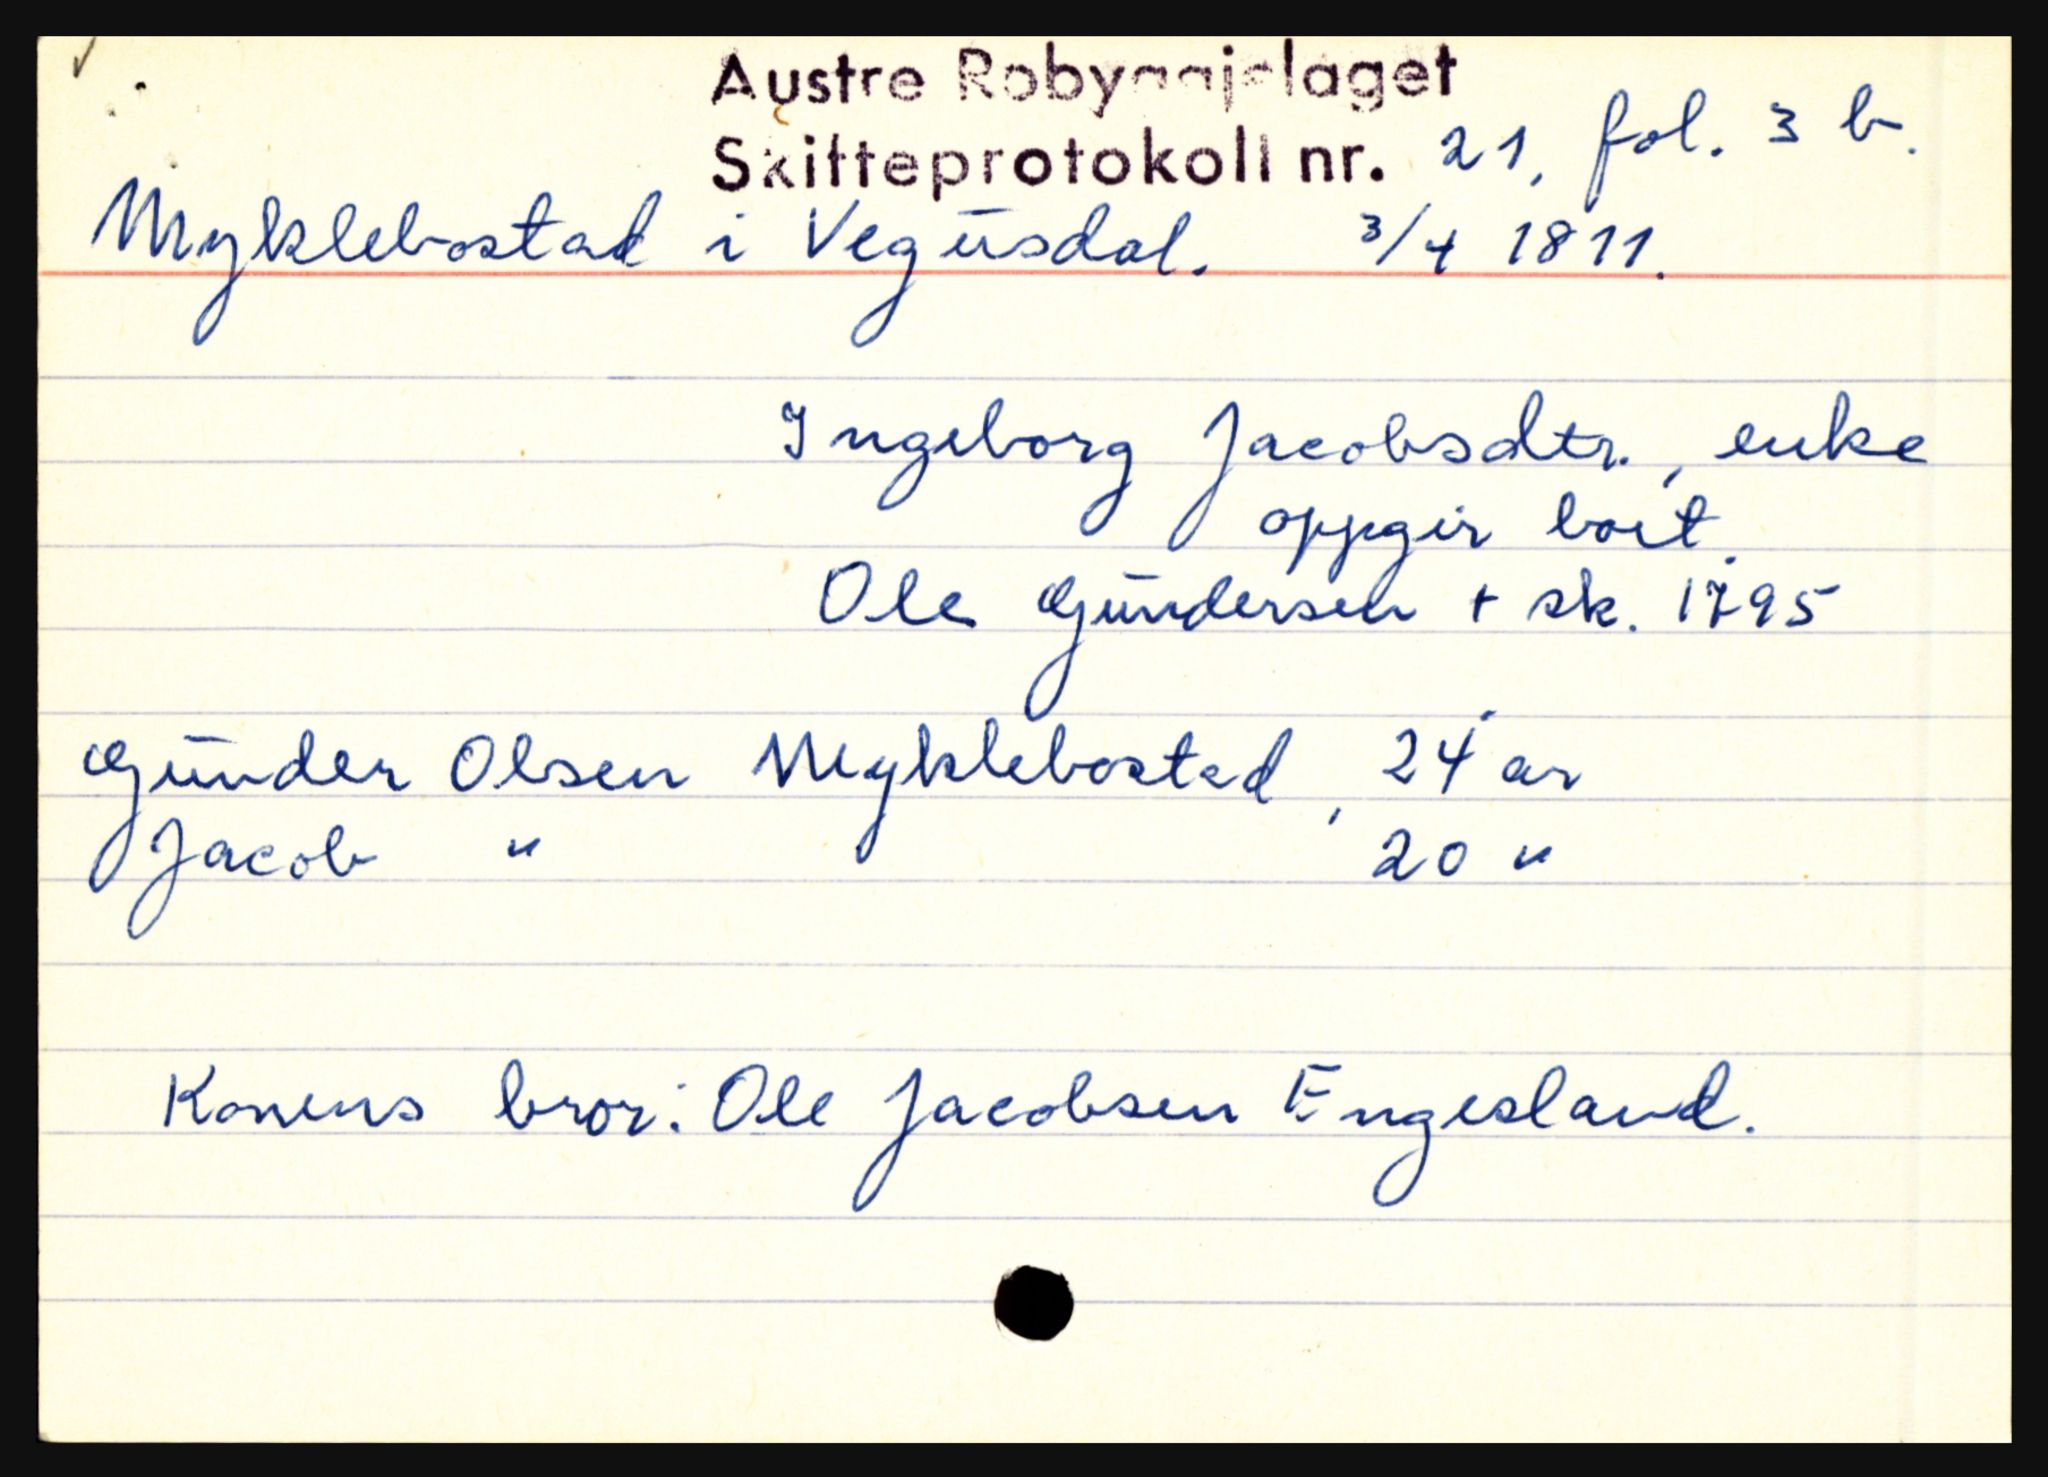 Austre Robyggjelaget
Skifteprotokoll nr. 21, fol. 3 b.
Myklebostad i Vegusdal. 3/4 1811.
Ingeborg Jacobsdtr., enke
oppgir boit.
Ole Gundersen + sk. 1795
Gunder Olsen Myklebostad, 24 år
Jacob " 20 "
Konens bror: Ole Jacobsen Engesland.